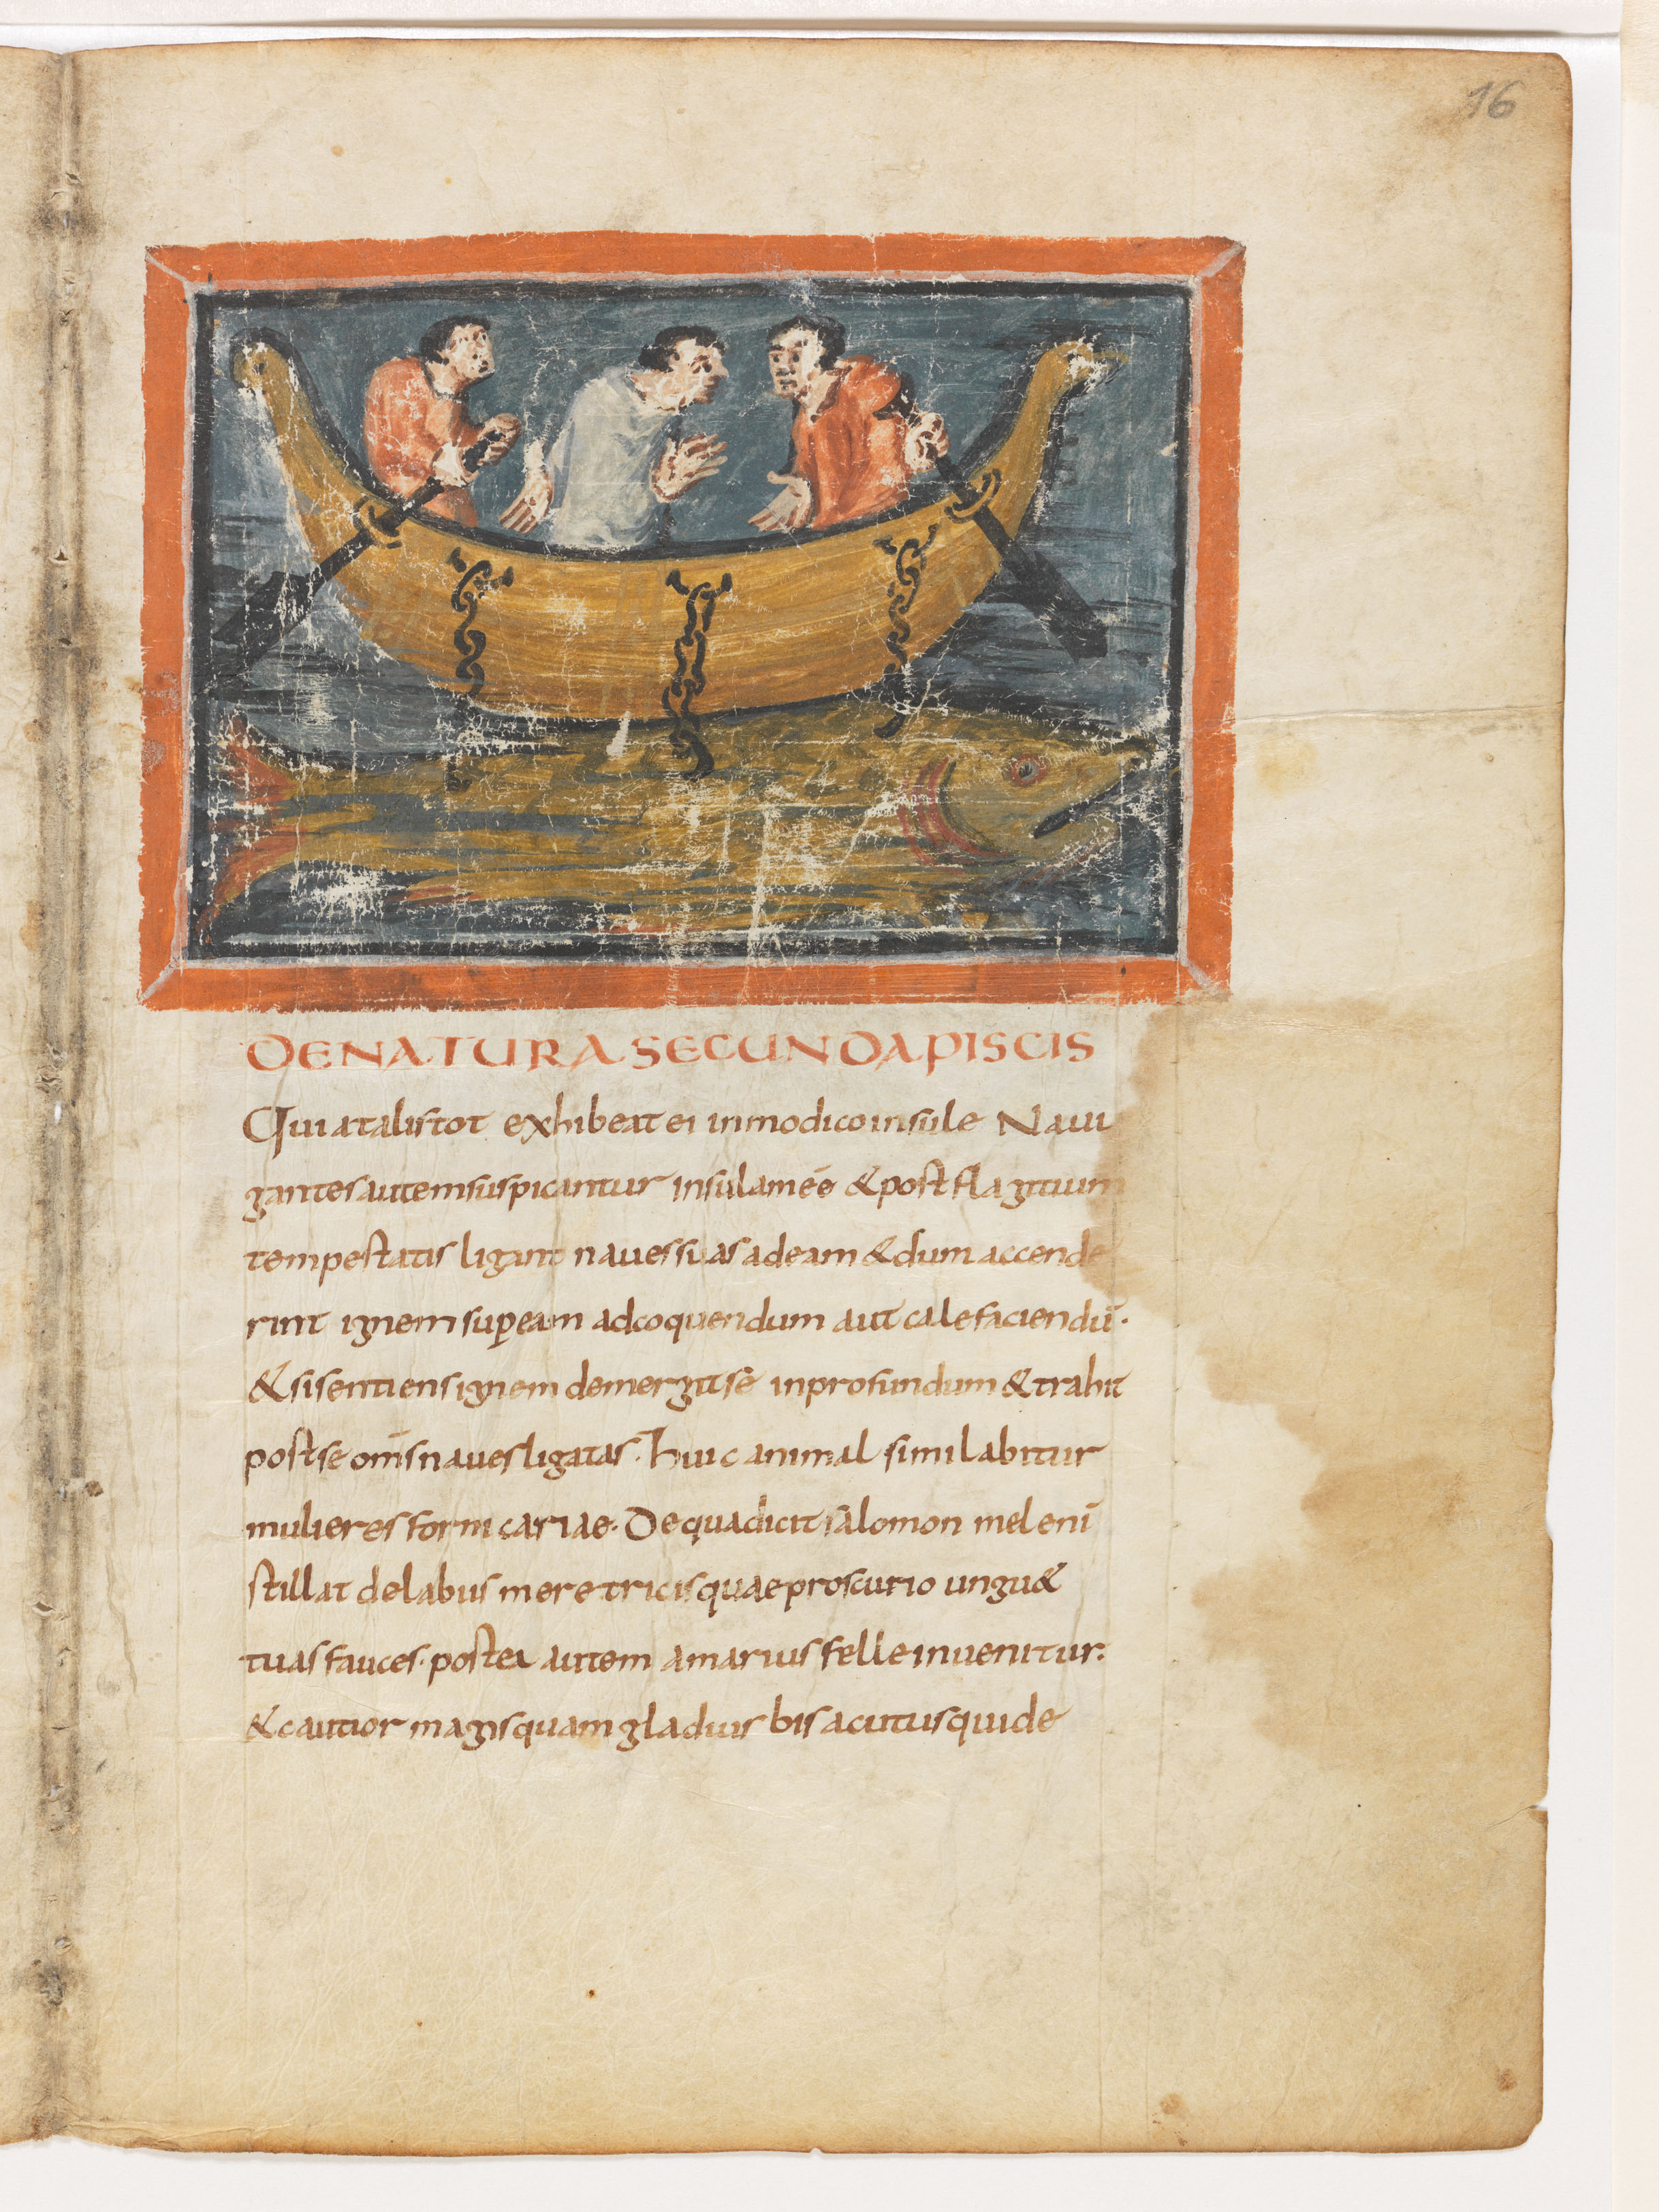 16
DE NATURA SECUNDA PISCIS
Quia talis tot exhibeat ei inmodico insule Naui
gantes autem suspicantur insulam ēē & post flagitium
tempestatis ligant naues suas ad eam & dum accende
rint ignem super eam ad coquendum aut calefaciendū.
& si sentiens ignem demergit se in profundum & trahit
post se om̄s naues ligatas. huic animal similabitur
mulieres fornicariae. De qua dicit salomon mel eni
stillat de labiis meretricis quae proscurio ungu&
tuas fauces. postea autem amarius felle inuenitur.
& cautior magis quam gladius bis acutus quide